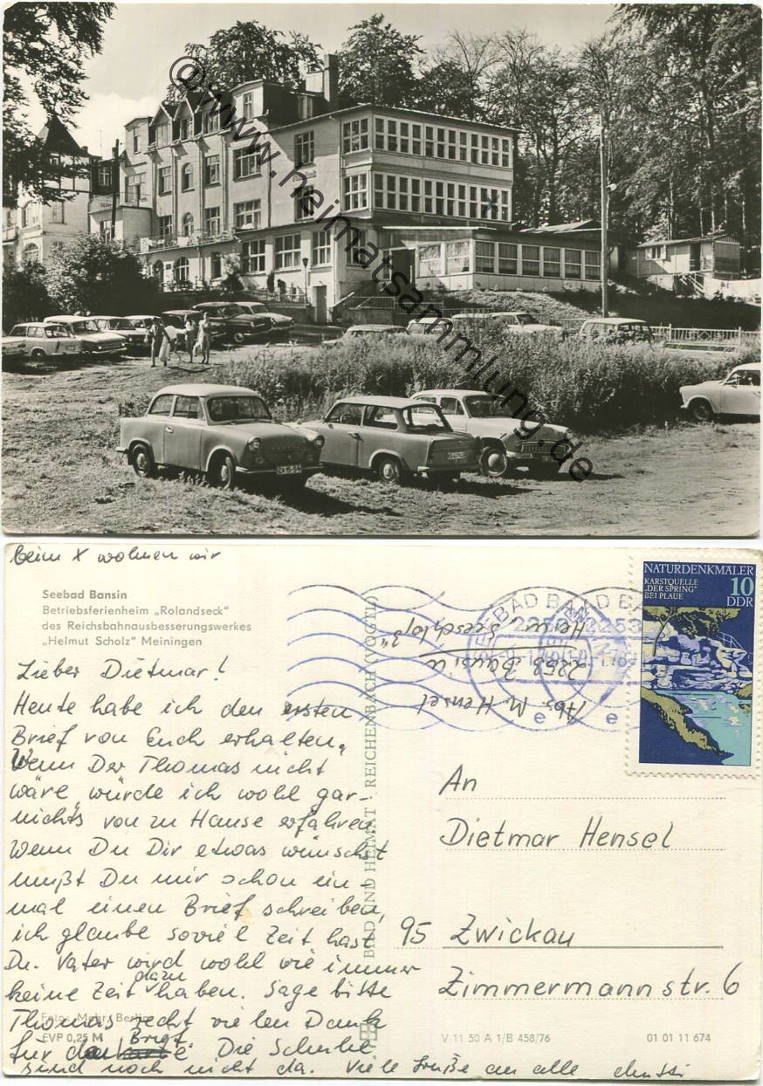 ©www.heimatsammlung.de
beim X wohnen wir
Seebad Bansin
Betriebsferienheim „Rolandseck"
des Reichsbahnausbesserungswerkes
„Helmut Scholz" Meiningen
Lieber Dietmar!
Heute habe ich den ersten
Brief von Euch erhalten.
Wenn Der Thomas nicht
wäre, würde ich wohl gar-
nichts von zu Hause erfahren
Wenn Du Dir etwas wünschst
mußt Du mir schon ein-
mal einen Brief schreiben,
ich glaube soviel Zeit hast
Du. Vater wird wohl wie immer
keine Zeit dazu haben. Sage bitte
Thomas recht vielen Dank
für den Brief. Die Schuhe
sind noch nicht da. Viele Grüße an alle
Foto: Mohr, Berlin
EVP 0,25 M
BILD UND HEIMAT · REICHENBACH (VOGTL)
Abs. M. Hensel
2253 Bansin
Heim „Seeschloß"
SEEBAD BANSIN
2253
e
NATURDENKMÄLER
KARSTQUELLE
„DER SPRING"
BEI PLAUE
10
DDR
An
Dietmar Hensel
95 Zwickau
Zimmermannstr. 6
V 11 50 A 1/B 458/76
01 01 11 674